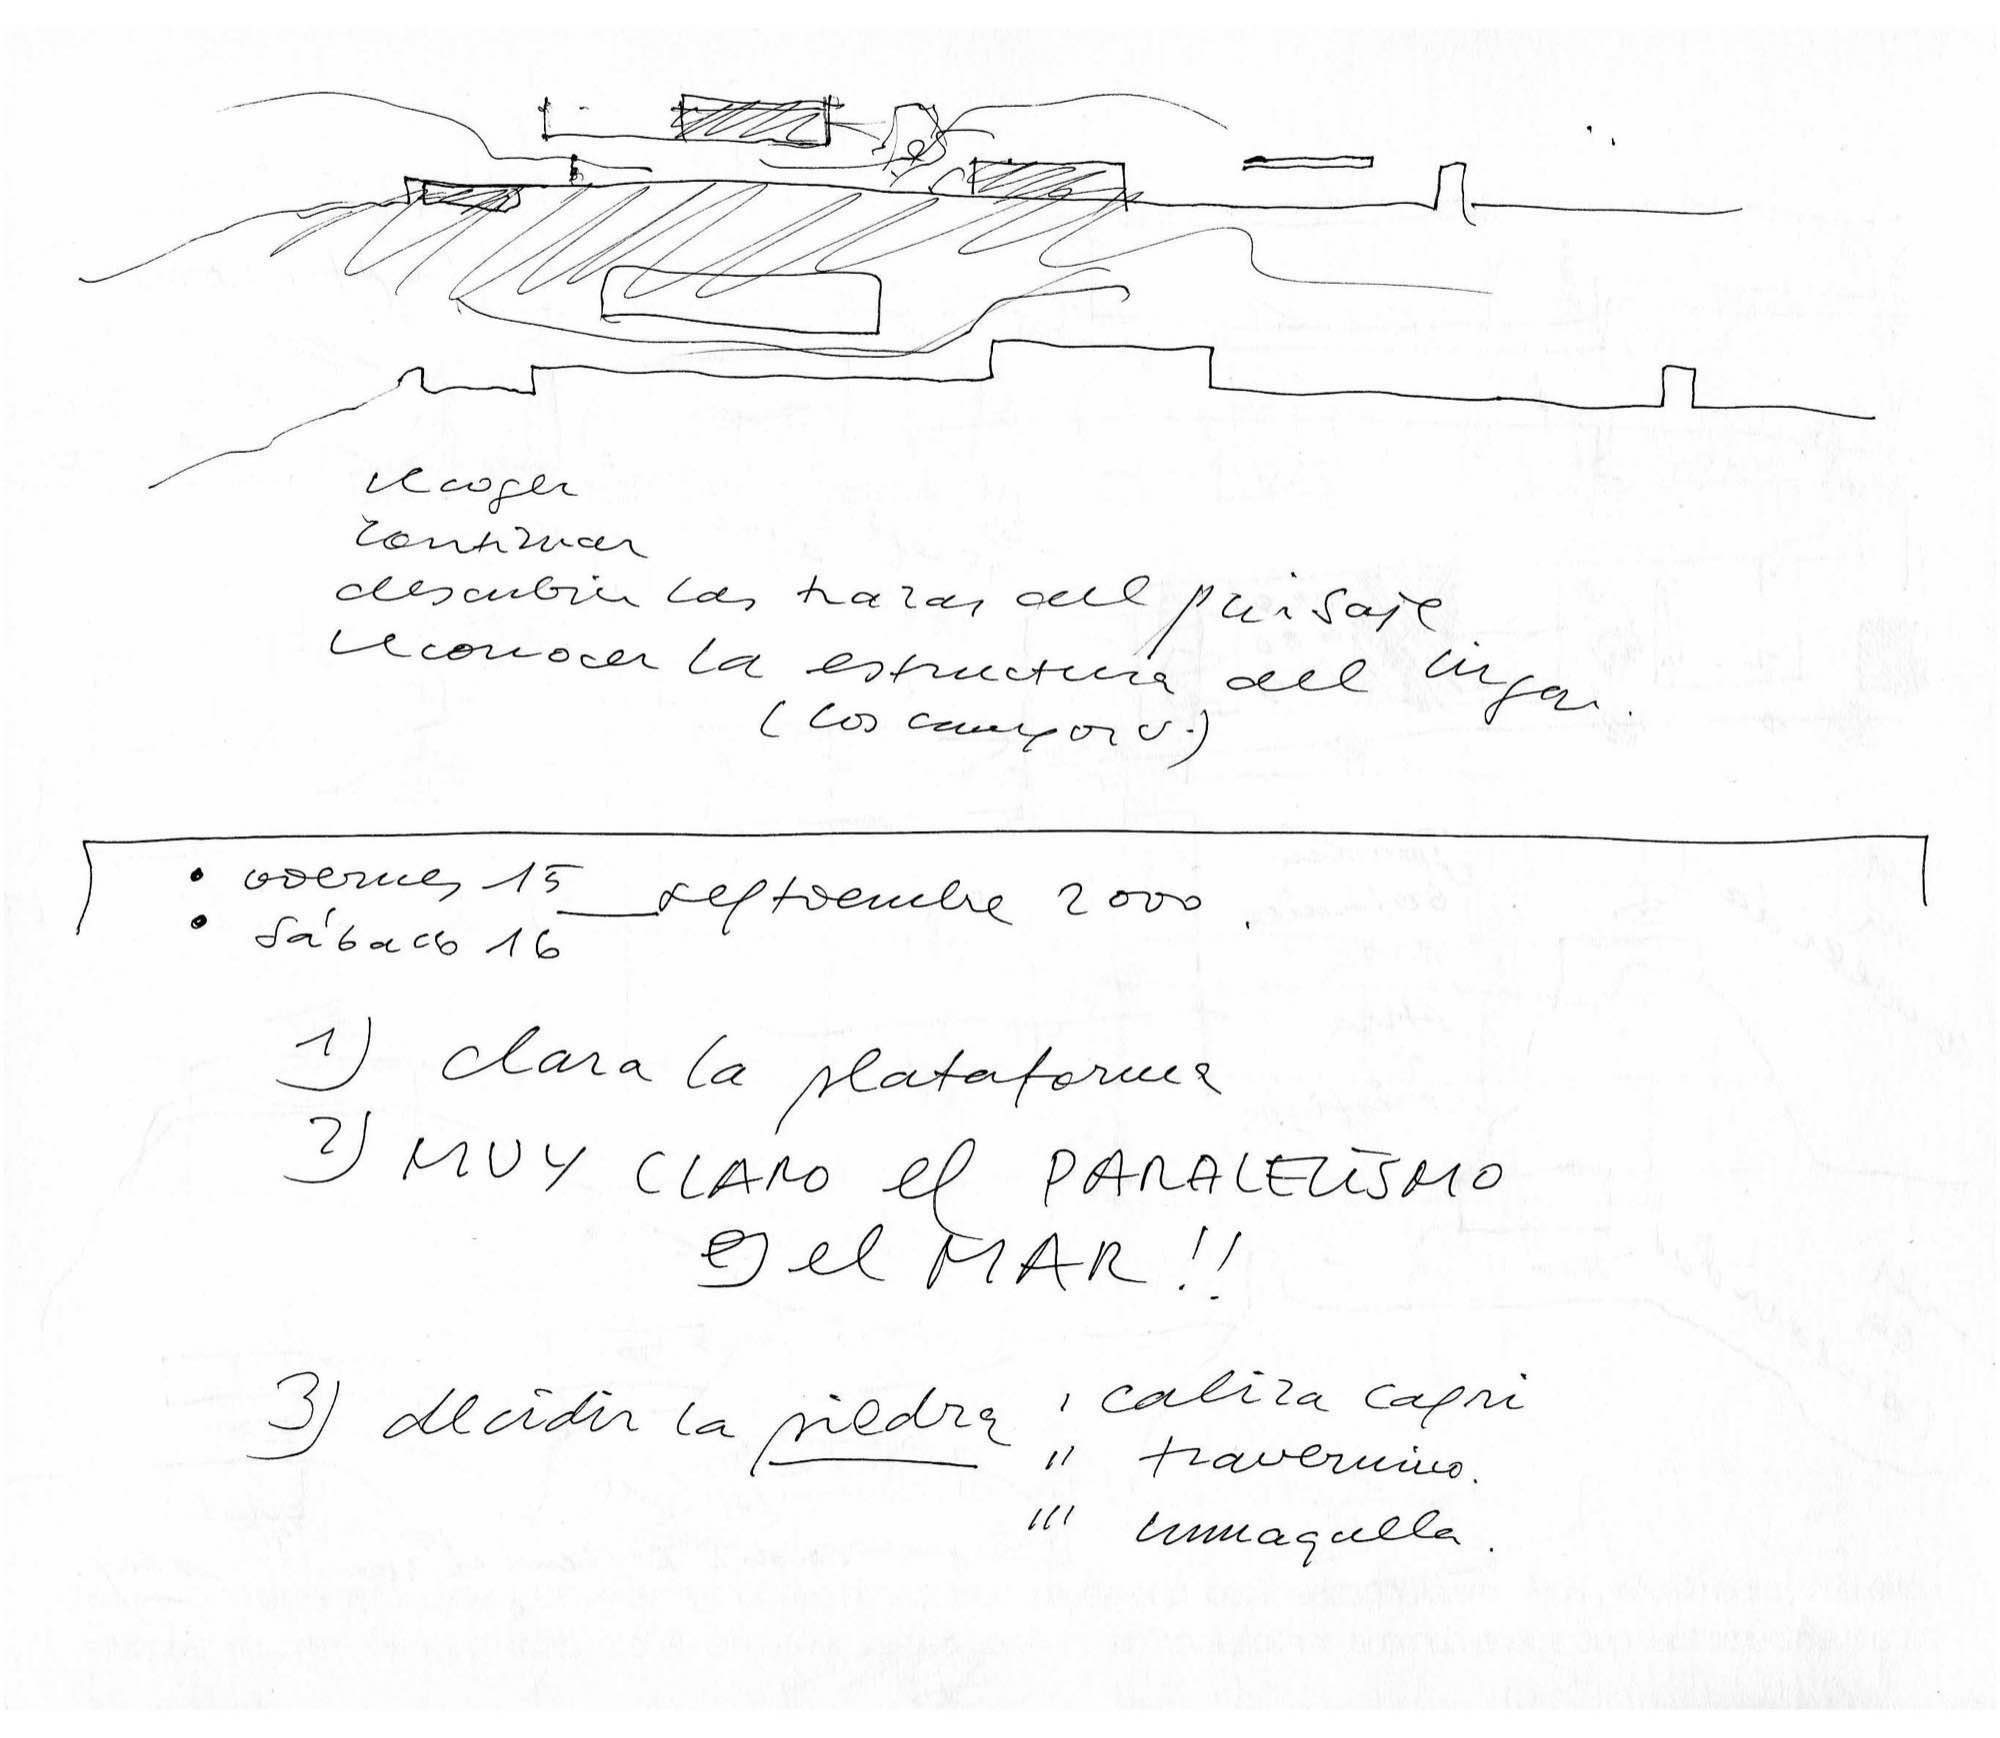 recoger
continuar
descubrir las trazas del paisaje
reconocer la estructura del lugar.
(los campos
• viernes 15 septiembre 2000.
• sábado 16
1) clara la plataforma
2) MUY CLARO el PARALELISMO
el MAR!!
3) decidir la piedra ' caliza capri
" travernino.
''' lumaquella.